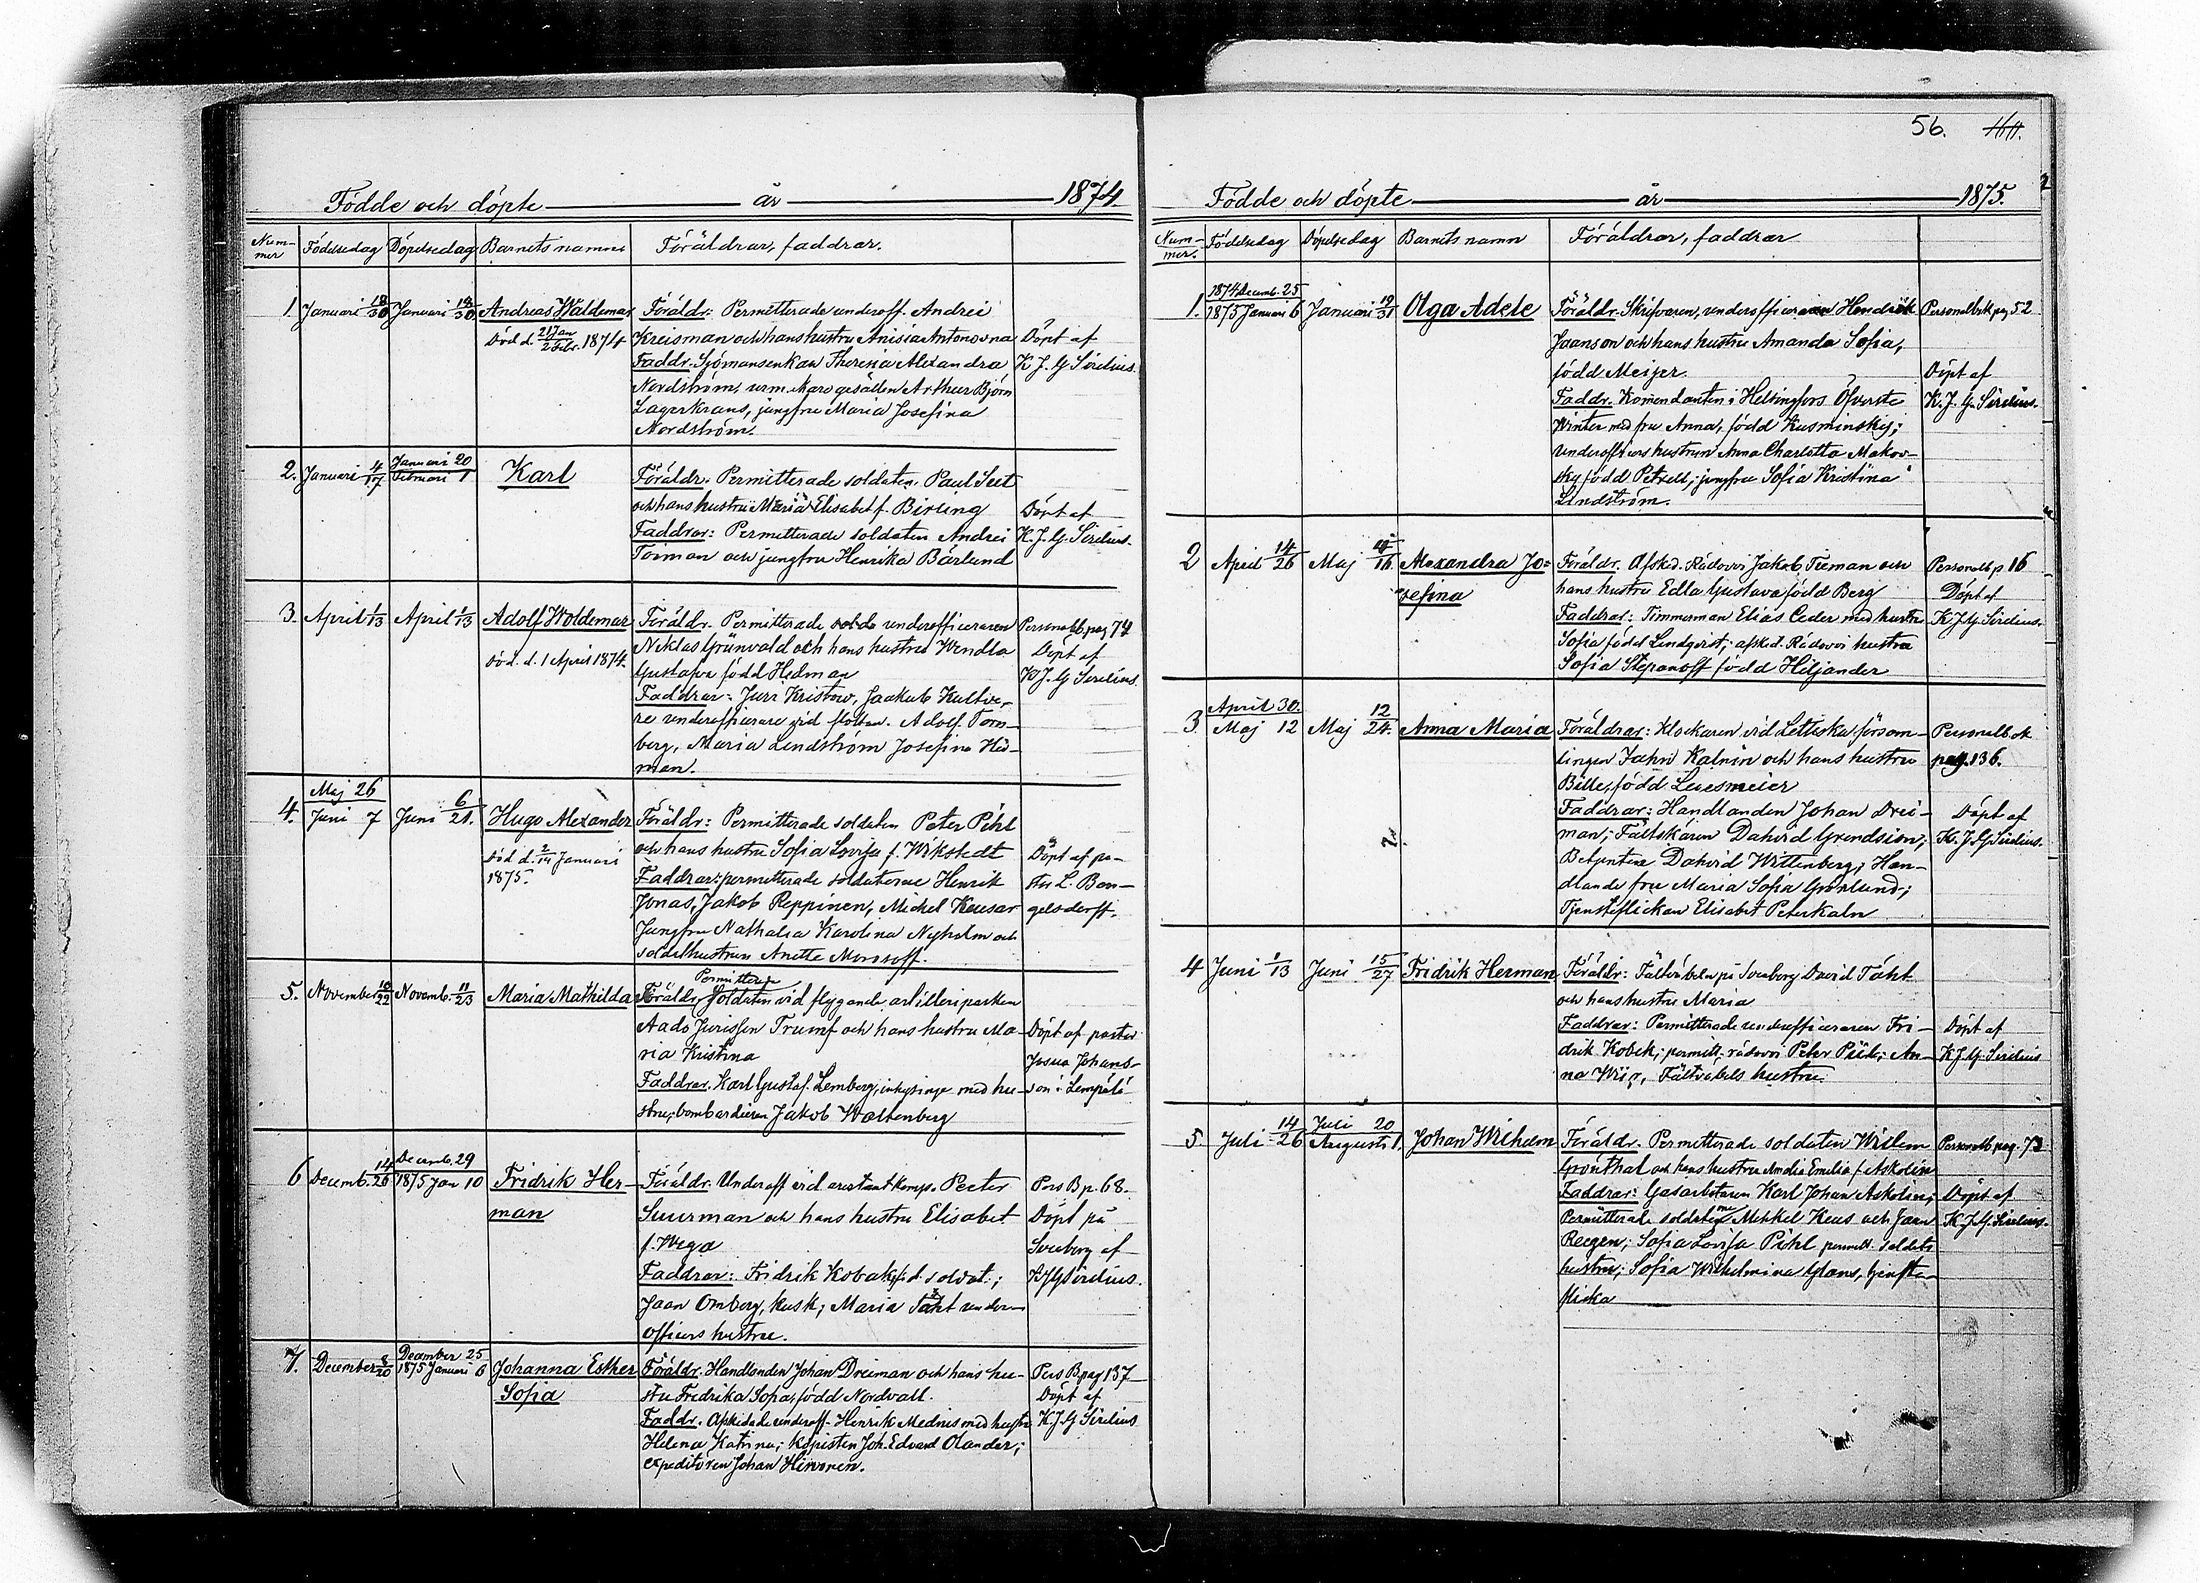 56.
Födde och döpte år 1874.
Num-
mer Födelsedag Döpelsedag Barnets namn Föräldrar, faddrar.
1. Januari 18/30 Januari 18/30 Andreas Waldemar Föräldr: Permitterade underoff. Andrei
Död d. 21 Jan/2 Febr. 1874 Kreisman och hans hustru Anisia Antonovna Döpt af
Faddr. Sjömansenkan Theresia Alexandra K J. G Sirelius.
Nordström, urm. gesällen Arthur Björn
Lagerkrans, jungfru Maria Josefina
Nordström.
2. Januari 4/17 Januari 20/Februari 1 Karl Föräldr. Permitterade soldaten Paul Seit
och hans hustru Maria Elisabet f. Birling Döpt af
Faddrar: Permitterade soldaten Andrei K. J. G. Sirelius.
Toiman och jungfru Henrika Bärlund
3. April 1/13 April 1/13 Adolf Woldemar Föräldr. Permitterade underofficeraren Personalb. pag 74
Niklas Grünvald och hans hustru Wendla Döpt af
Död. d. 1 April 1874. Gustafva född Hedman K J. G Sirelius.
Faddrar: Jurr Kristow, Jaakub Kultve-
re underofficerare vid flottan. Adolf Torn-
berg, Maria Lindström Josefina Hed-
man.
4. Maj 26/Juni 7 Juni 6/21. Hugo Alexander Föräldr: Permitterade soldaten Peter Pihl
Död d. 2/14 Januari och hans hustru Sofia Lovisa f. Wikstedt Döpt af pa-
1875. Faddrar: permitterade soldaterne Henrik stor L. Ban-
Jonas, Jakob Peppinen, Michel Keusar gelsdorff.
Jungfru Nathalia Karolina Nyholm och
soldathustrun Anette Morosoff.
5. November 10/22 Novemb. 11/23 Maria Mathilda Föräldr. Permitterade Soldaten vid flygande artilleriparken
Aado Jurissen Trumf och hans hustru Ma- Döpt af pastor
ria Kristina Josua Johans-
Faddrar. Karl Gustaf Lemberg, inhysinge med hu- son i Lempälä
stru; bombardieren Jakob Woltenberg
6 Decemb. 14/26 Decemb. 29/1875 Jan 10 Fridrik Her- Föräldr. Underoff vid arestantkomp. Peeter Pers B p. 68.
man Suurman och hans hustru Elisabet Döpt på
f. Wega Sveaborg af
Faddrar: Fridrik Kobak, f.d. soldat; K J G Sirelius.
Jaan Omberg, kusk; Maria Taht under-
officers hustru.
7. December 8/20 December 25/1875 Januari 6 Johanna Esther Föräldr. Handlanden Johan Dreiman och hans hu- Pers B pag 137
Sofia stru Fredrika Sofia, född Nordvall. Döpt af
Faddr. Afskedade underoff. Henrik Mednis med hustru K J. G Sirelius
Helena Katrina; kopisten Joh. Edvard Olander;
expeditören Johan Hirvonen.
Födde och döpte år 1875.
Num-
mer. Födelsedag Döpelsedag Barnets namn Föräldrar, faddrar
1. 1874 Decemb. 25/1875 Januari 6 Januari 19/31 Olga Adele Föräldr. Skrifvaren, underofficeraren Hendrik Personalbok pag 52
Jaanson och hans hustru Amanda Sofia,
född Meijer. Döpt af
Faddr. Komendanten i Helsingfors Öfverste K. J. G. Sirelius.
Winter med fru Anna, född Kusminsky;
Underofficers hustrun Anna Charlotta Makov-
sky född Petzeld; jungfru Sofia Kristina
Lindström.
2 April 14/26 Maj 4/16 Alexandra Jo- Föräldr. Afsked. Rädovoi Jakob Tieman och Personalb p 16
sefina hans hustru Edla Gustava född Berg Döpt af
Faddrar: Timmerman Elias Ceder med hustru K J G Sirelius.
Sofia född Lindqvist; afsked. Rädovoi hustru
Sofia Stepanoff född Hiljander
3 April 30./Maj 12 Maj 12/24. Anna Maria Föräldrar: Klockaren vid Lettiska försam- Personalbok
lingen Jahn Kalnin och hans hustru pag. 136.
Bille, född Leiesmeier
Faddrar: Handlanden Johan Drei- Döpt af
man; Fältskären Dahvid Grendsion; K. J G Sirelius.
Betjenten Dahvid Wittenberg; Han-
dlande fru Maria Sofia Grönlund;
Tjensteflickan Elisabet Peterkaln
4 Juni 1/13 Juni 15/27 Fridrik Herman Föräldr: Fältväbeln på Sveaborg David Täht
och hans hustru Maria
Faddrar: Permitterade underofficeraren Fri- Döpt af
drik Kobek; permitt. rädovoi Peter Piil; An- K J G. Sirelius
na Wiiq, Fältväbels hustru.
5 Juli 14/26 Juli 20/Augusti 1. Johan Wilhelm Föräldr. Permitterade soldaten Wilem Personalb pag. 73
Grönthal och hans hustru Amalia Emilia f. Askolin
Faddrar: Gasarbetaren Karl Johan Askolin; Döpt af
Permitterade soldaterne Mihkel Keus och Jaan K. J. G. Sirelius.
Reegen; Sofia Lovisa Pihl permitt. soldats
hustru; Sofia Wilhelmina Glans, tjenste-
flicka